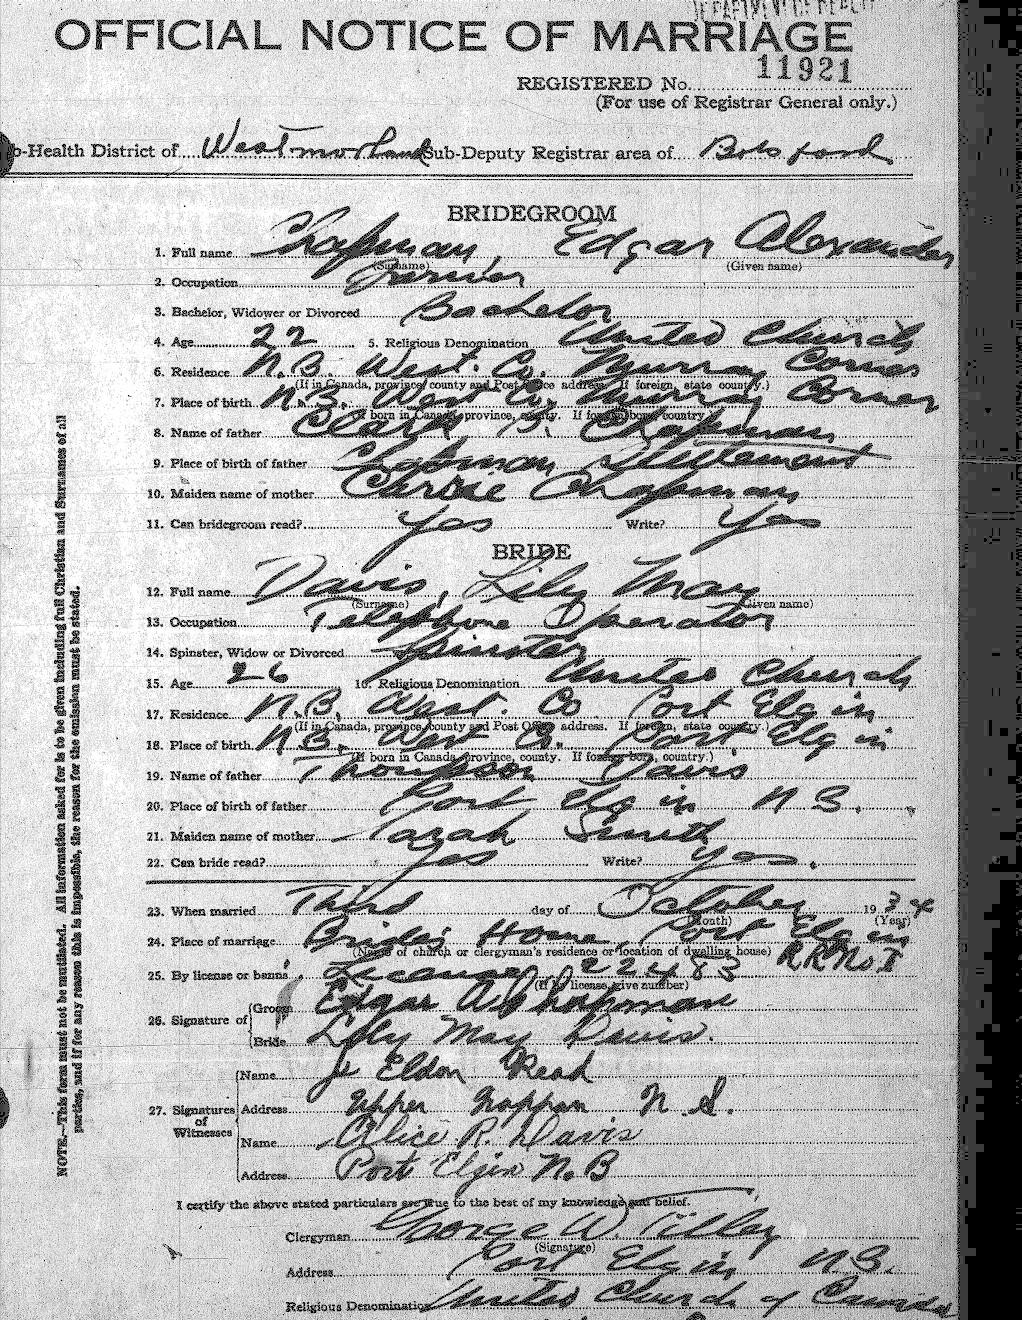 DEPARTMENT OF HEALTH
OFFICIAL NOTICE OF MARRIAGE
11921
REGISTERED No.
(For use of Registrar General only.)
b-Health District of Westmorland Sub-Deputy Registrar area of Botsford
BRIDEGROOM
1. Full name Chapman, Edgar Alexander
(Surname) (Given name)
2. Occupation Farmer
3. Bachelor, Widower or Divorced Bachelor
4. Age 22 5. Religious Denomination United Church
6. Residence N.B. West. Co. Murray Corner
(If in Canada, province, county and Post Office address. If foreign, state country.)
7. Place of birth N.B. West Co. Murray Corner
(If born in Canada province, county. If foreign born, country.)
8. Name of father Clark Chapman
9. Place of birth of father Chapman Settlement
10. Maiden name of mother Carrie Chapman
11. Can bridegroom read? Yes Write? Yes
BRIDE
12. Full name Davis, Lily May
(Surname) (Given name)
13. Occupation Telephone Operator
14. Spinster, Widow or Divorced Spinster
15. Age 26 16. Religious Denomination United Church
17. Residence N.B. West. Co Port Elgin
(If in Canada, province, county and Post Office address. If foreign, state country.)
18. Place of birth N.B. West Co. Port Elgin
(If born in Canada province, county. If foreign born, country.)
19. Name of father Thompson Davis
20. Place of birth of father Port Elgin N B.
21. Maiden name of mother Sarah Smith
22. Can bride read? Yes Write? Yes.
23. When married Third day of October 1934
(Month) (Year)
24. Place of marriage Bride's Home, Port Elgin
(Name of church or clergyman's residence or location of dwelling house) R R No I
25. By license or banns License 22483
(If by license, give number)
26. Signature of Groom Edgar A Chapman
Bride Lily May Davis.
27. Signatures of Witnesses
Name J. Eldon Read
Address Upper Nappan N. S.
Name Alice R. Davis
Address Port Elgin N.B
I certify the above stated particulars are true to the best of my knowledge and belief.
Clergyman George W. Tilley
(Signature)
Address Port Elgin N B.
Religious Denomination United Church of Canada
NOTE.—This form must not be mutilated. All information asked for is to be given including full Christian and Surnames of all
parties, and if for any reason this is impossible, the reason for the omission must be stated.